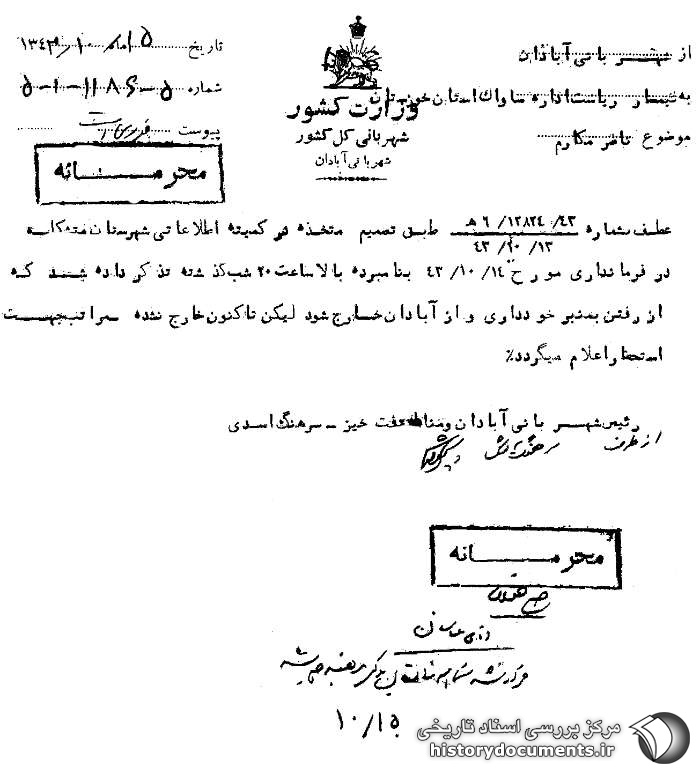 از شهربانی آبادان
به تیمسار ریاست اداره ساواک استان خوزستان
موضوع ناصر مکارم
وزارت کشور
شهربانی کل کشور
شهربانی آبادان
تاریخ ۱۵ / ۱۰ / ۱۳۴۳
شماره ۵-۱۱۸۶-۱-۵
پیوست
محرمانه
عطف بشماره ۱۲۸۲۴/ ۶ ﻫ /۴۳
۱۳/ ۱۰/ ۴۳
طبق تصمیم متخذه در کمیته اطلاعاتی شهرستان متشکله
در فرمانداری مورخ ۱۴/ ۱۰/ ۴۳ بنامبرده بالا ساعت ۲۰ شب گذشته تذکر داده شد که
از رفتن بمنبر خودداری و از آبادان خارج شود لیکن تاکنون خارج نشده مراتب جهت
استحضار اعلام میگردد٪
رئیس شهربانی آبادان و مناطق نفت خیز - سرهنگ اسدی
از طرف سرهنگ
محرمانه
۱۰/۱۵
مرکز بررسی اسناد تاریخی
historydocuments.ir